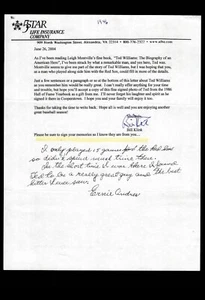 1946
STAR
LIFE INSURANCE
COMPANY
June 26, 2004
As I've been reading Leigh Montville's fine book, "Ted Williams: The Biography of an
American Hero", I've been struck by what a remarkable man, and hero, Ted was.
Montville seems to give us one part of the story of Ted Williams, but I was hoping that you,
as a man who played along him with the Red Sox, could fill in more of the details.
Just a few sentences or a paragraph or so at the bottom of this letter about Ted Williams
as you remember him would be really great. I can't really offer anything for your time
and trouble, but hope you'll accept a copy of this fine signed photo of Ted from the 1986
Hall of Fame Yearbook as a gift from me. I'll never forget his laughter and spirit as he
signed it there in Cooperstown. I hope you and your family will enjoy it too.
Thanks for taking the time to write back. Hope all is well and you are enjoying another
great baseball season!
Bill Klink
Please be sure to sign your memories so I know they are from you....
I only played 15 games for the Red Sox
so didn't spend much time there.
In the short time I was there I found
Ted to be a really great guy and the best
hitter I ever saw.
Ernie Andres